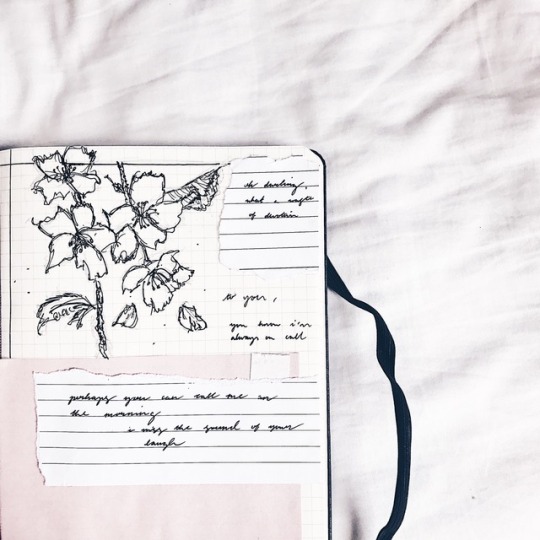 oh darling,
what a waste
of devotion
to you,
you know i'm
always on call
perhaps you can call me in
the morning
i miss the sound of your
laugh